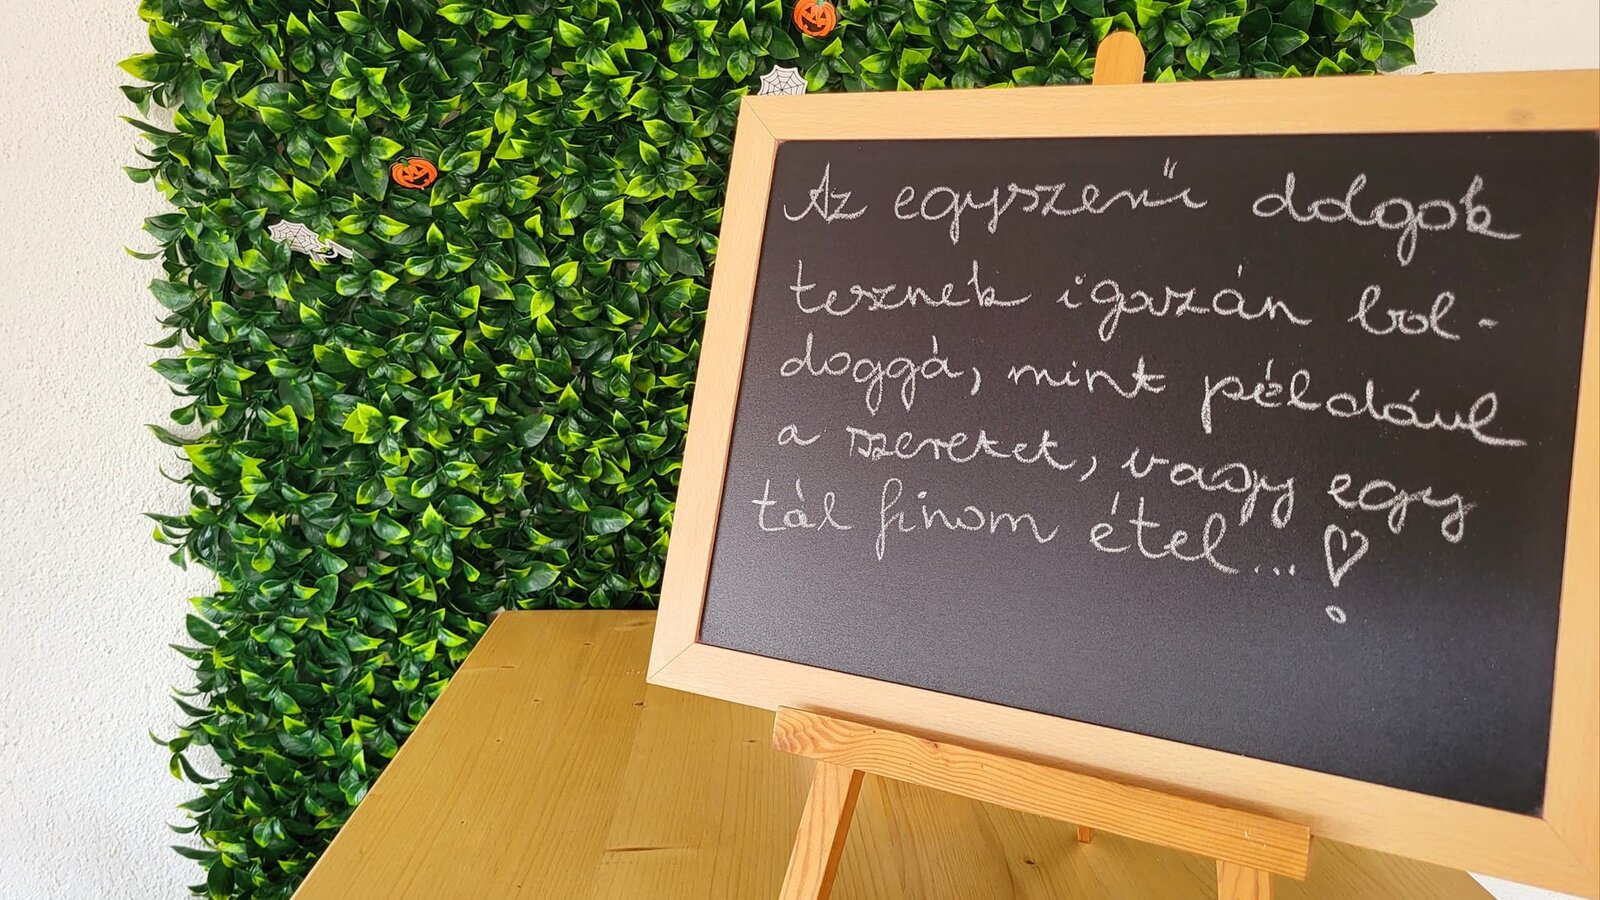 Az egyszerű dolgok
tesznek igazán bol-
doggá, mint például
a szeretet, vagy egy
tál finom étel...